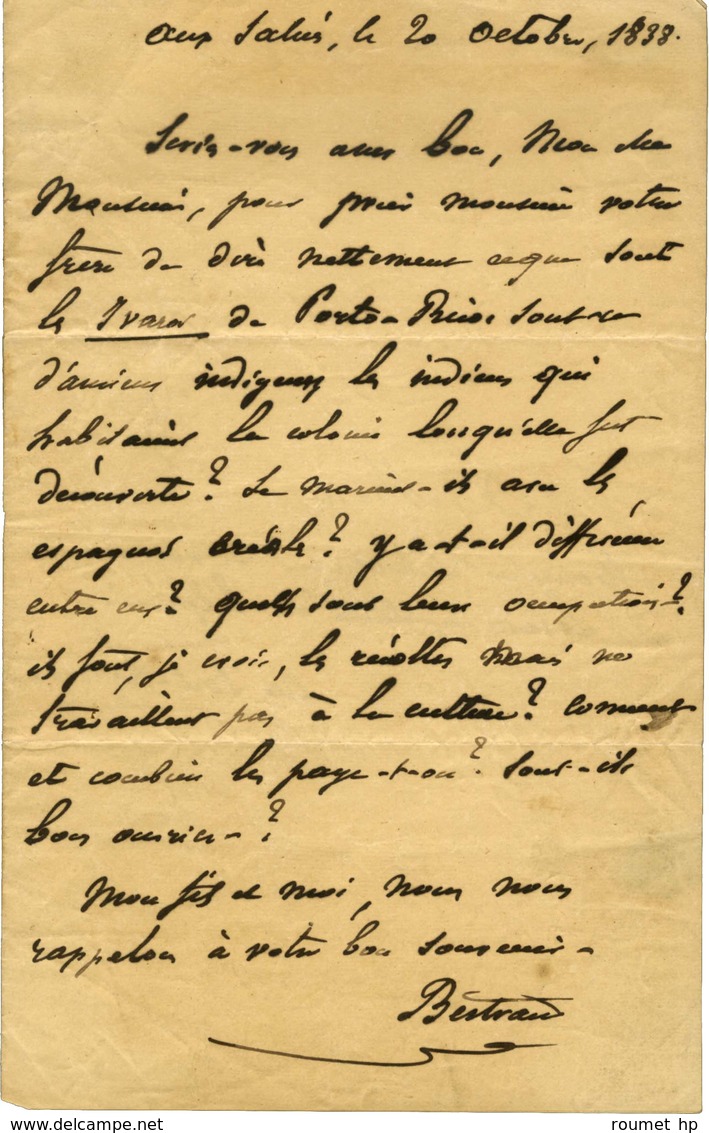 aux Salies, le 20 Octobre, 1838.
Seriez-vous assez bon, Mon cher
Monsieur, pour prier monsieur votre
frère de dire nettement ce que sont
les Ivaros de Porto-Rico. Sont-ce
d'anciens indigenes les indiens qui
habitaient la colonie lorsqu'elle fut
découverte? Se marient-ils avec les
espagnols créols? y a-t-il différence
entre eux? quelles sont leurs occupations?
ils font, je crois, les récoltes mais ne
travaillent pas à la culture? comment
et combien les paye-t-on? Sont-ils
bons ouvriers-?
Mon fils et moi, nous nous
rappelons à votre bon souvenir-
Bertrand
roumet hp